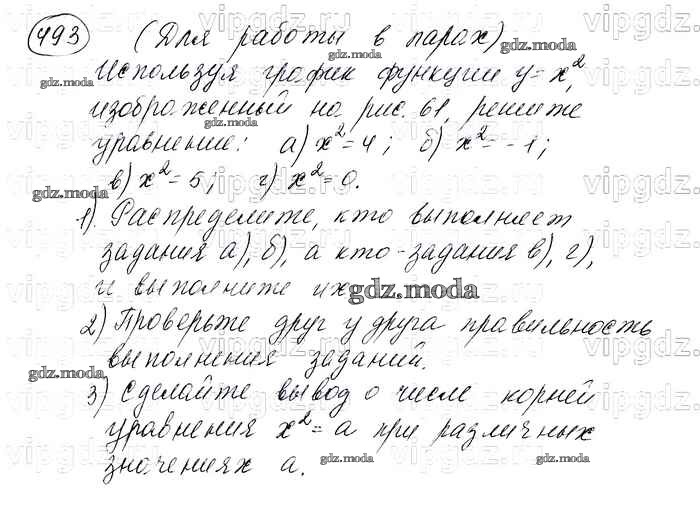 493 (Для работы в парах)
Используя график функции y=x²,
изображенный на рис. 61, решите
уравнение: а) x²=4; б) x²=-1;
в) x²=5; г) x²=0.
1). Распределите, кто выполняет
задания а), б), а кто-задания в), г),
и выполните их.
2) Проверьте друг у друга правильность
выполнения заданий.
3) Сделайте вывод о числе корней
уравнения x²=a при различных
значениях а.
gdz.moda
gdz.moda
gdz.moda
gdz.moda
gdz.moda
gdz.moda
gdz.moda
vipgdz.ru